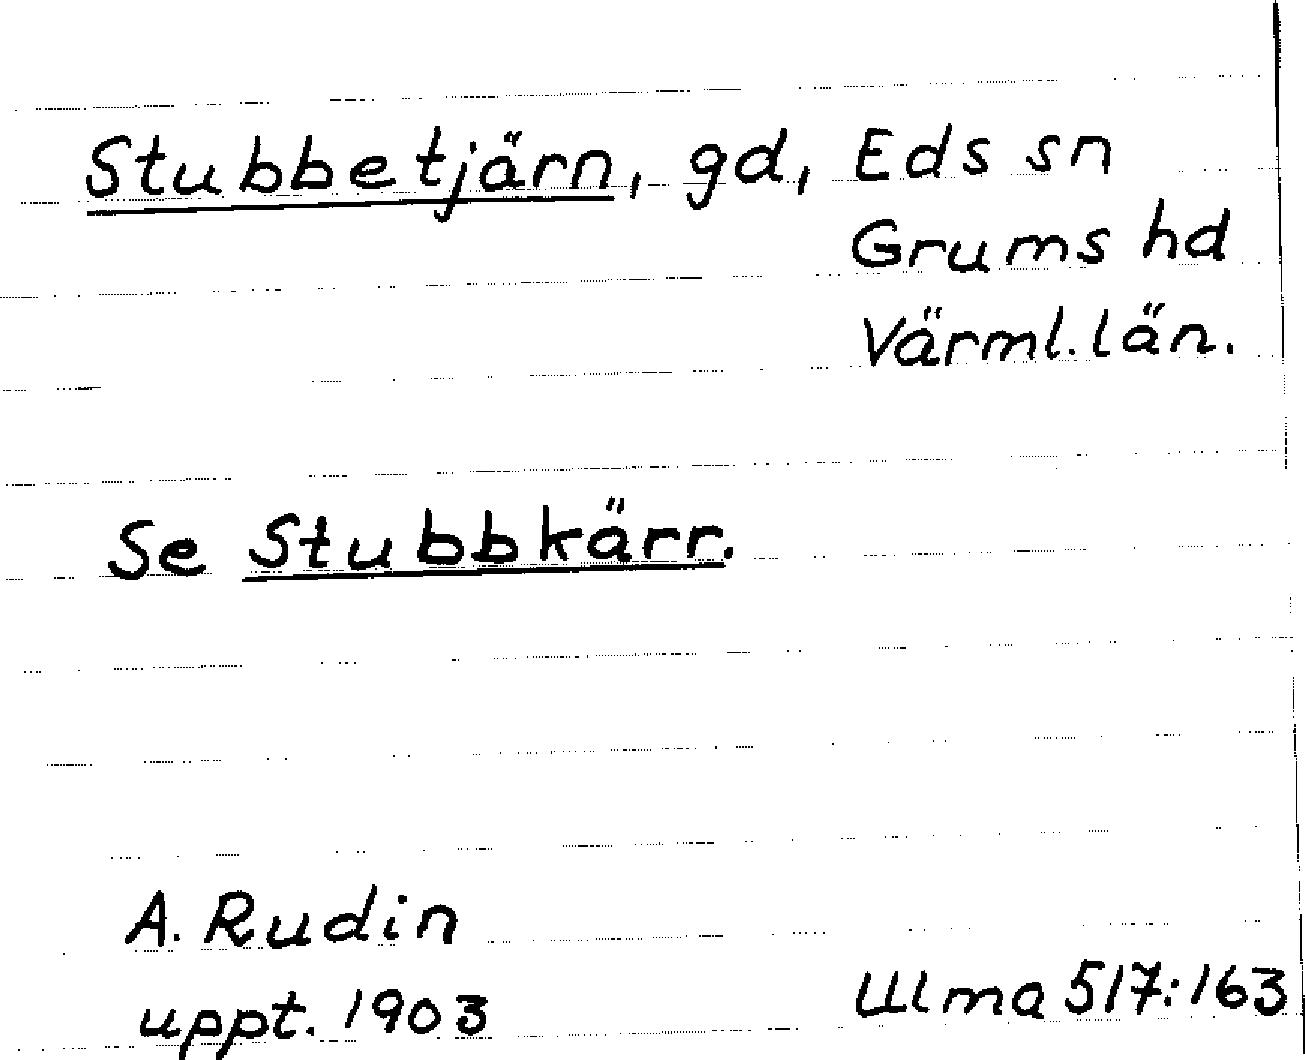 Stubbetjärn, gd, Eds sn
Grums hd
Värml. län.
Se Stubbkärr.
A. Rudin
uppt. 1903
Ulma 517:163